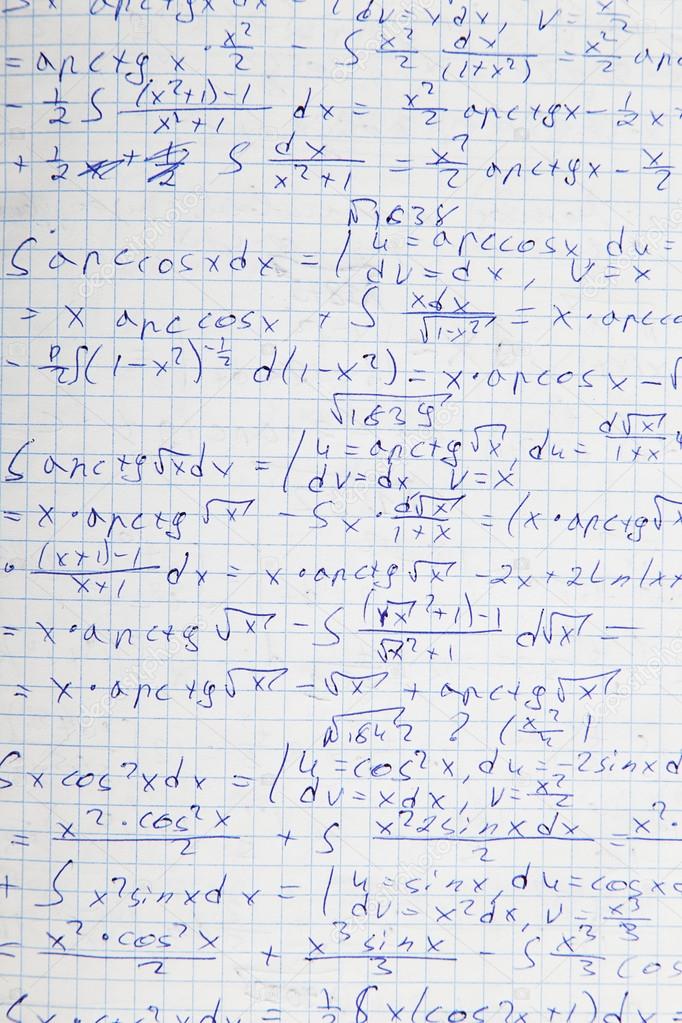 = arctg x · x²/2 − ∫ x²/2 dx/(1+x²) = x²/2 arc
− 1/2 ∫ ((x²+1)−1)/(x²+1) dx = x²/2 arctgx − 1/2 x
+ 1/2 ∫ dx/(x²+1) = x²/2 arctgx − x/2
√1638
∫ arccosxdx = | u = arccosx, du =
dv = dx, v = x
= x arccosx + ∫ xdx/√(1−x²) = x · arcc
∫(1−x²)^(−1/2) d(1−x²) = x · arcosx − √
√1639
∫ arctg√x dx = | u = arctg√x, du = d√x/(1+x)
dv = dx v = x
= x · arctg √x − ∫ x · d√x/(1+x) = (x · arctg√x
· ((x+1)−1)/(x+1) dx = x · arctg √x − 2x + 2Ln|x
= x · arctg √x − ∫ ((√x²+1)−1)/(√x²+1) d√x =
= x · arctg√x − √x + arctg√x
√1642 ?
∫x cos²xdx = | u = cos²x, du = −2sinxd
dv = xdx, v = x²/2
= (x² · cos²x)/2 + ∫ (x²2sinxdx)/2 = x² ·
+ ∫ x²sinxdx = | u = sinx, du = cosx
dv = x²dx, v = x³/3
= (x² · cos²x)/2 + (x³ sinx)/3 − ∫ x³/3 cos
= 1/2 ∫ x(cos2x + 1)dx =